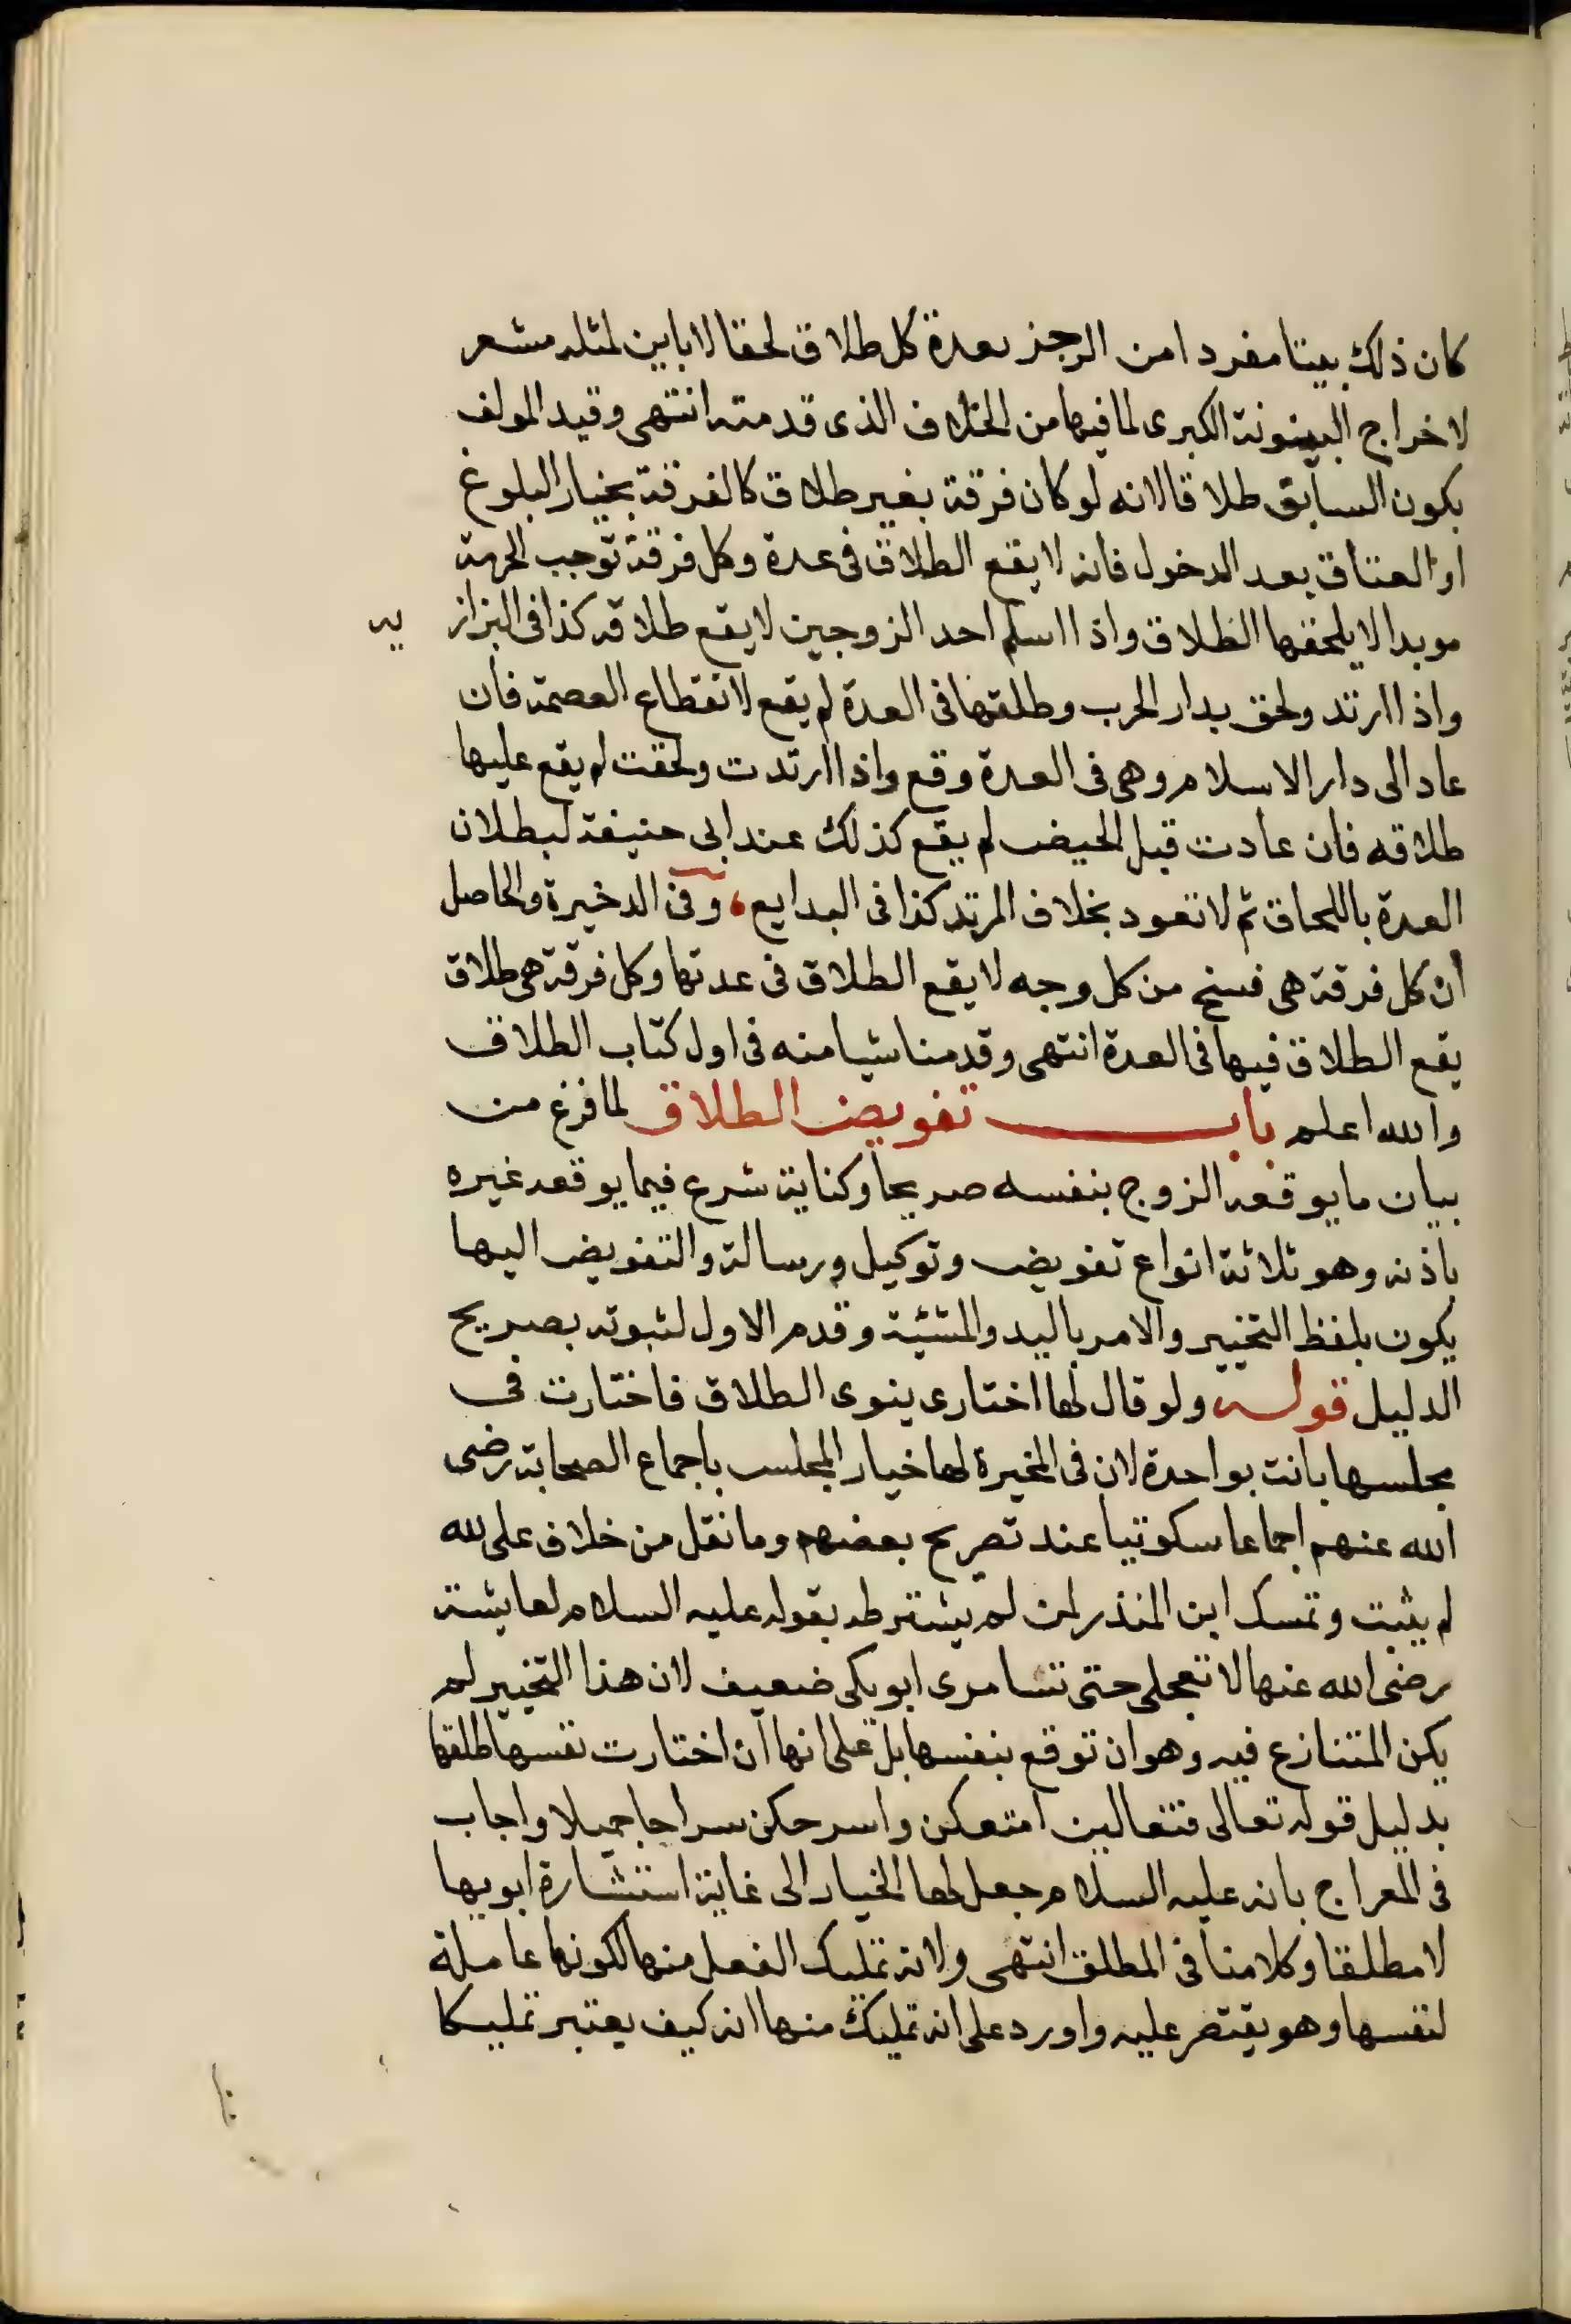 كان ذلك بيتا مفردا من الرجز بعدة كل طلاق لحقا لا باين لمثله مشعر
لاخراج البينونة الكبرى لما فيها من الخلاف الذى قدمته انتهى وقيد المولف
بكون السابق طلاقا لانه لو كان فرقة بغير طلاق كالفرقة بخيار البلوغ
او العتاق بعد الدخول فانه لا يقع الطلاق فى عدة وكل فرقة توجب الحرمة
موبدا لا يلحقها الطلاق واذا اسلم احد الزوجين لا يقع طلاقه كذا فى البزازيه
واذا ارتد ولحق بدار الحرب وطلقها فى العدة لم يقع لانقطاع العصمة فان
عاد الى دار الاسلام وهى فى العدة وقع واذا ارتدت ولحقت لم يقع عليها
طلاقه فان عادت قبل الحيض لم يقع كذلك عند ابى حنيفة لبطلان
العدة باللحاق ثم لا تعود بخلاف المرتد كذا فى البدايع، وفى الدخيرة والحاصل
أن كل فرقة هى فسخ من كل وجه لا يقع الطلاق فى عدتها وكل فرقة هى طلاق
يقع الطلاق فيها فى العدة انتهى وقدمنا شيا منه فى اول كتاب الطلاق
والله اعلم باب تفويض الطلاق لما فرغ من
بيان ما يوقعه الزوج بنفسه صريحا وكناية شرع فيما يوقعه غيره
باذنه وهو ثلاثة انواع تفويض وتوكيل ورسالة والتفويض اليها
يكون بلفظ التخيير والامر باليد والمشئية وقدم الاول لثبوته بصريح
الدليل قوله ولو قال لها اختارى ينوى الطلاق فاختارت فى
مجلسها بانت بواحدة لان فى المخيرة لها خيار المجلس باجماع الصحابة رضى
الله عنهم اجماعا سكوتيا عند تصريح بعضهم وما نقل من خلاف على لله
لم يثبت وتمسك ابن المنذر لمن لم يشترطه بقوله عليه السلام لعايشة
رضى الله عنها لا تعجلى حتى تتسامرى ابويكى ضعيف لان هذا التخيير لم
يكن المتنازع فيه وهو ان توقع بنفسها بل على انها ان اختارت نفسها طلقها
بدليل قوله تعالى فتعالين امتعكن واسرحكن سراحا جميلا واجاب
فى المعراج بانه عليه السلام جعل لها الخيار الى غاية استشارة ابويها
لا مطلقا وكلامنا فى المطلق انتهى ولانه تمليك الفعل منها لكونها عاملة
لنفسها وهو يقتصر عليه واورد على انه تمليك منها انه كيف يعتبر تمليكا